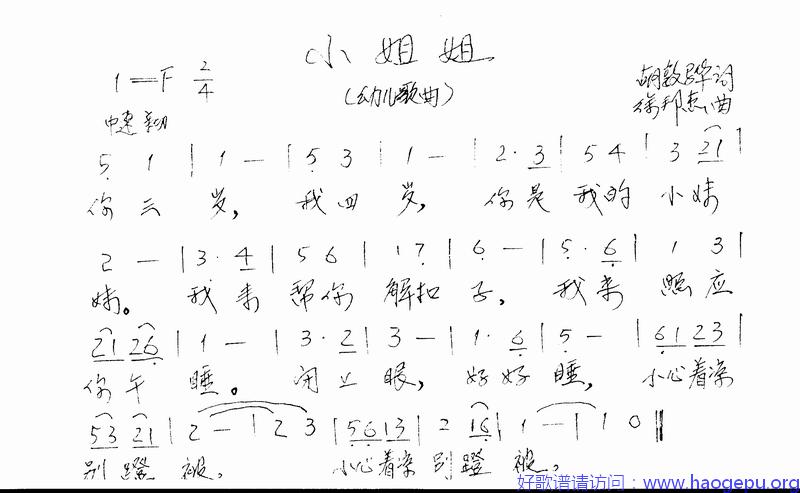 小姐姐
(幼儿歌曲)
1=F 2/4
胡敦骅词
徐邦杰曲
中速
5 1 | 1 - | 5 3 | 1 - | 2· 3 | 5 4 | 3 21 |
你三 岁, 我四 岁, 你是 我的 小妹
2 - | 3· 4 | 5 6 | 1 7 | 6 - | 5· 6 | 1 3 |
妹。 我来 帮你 解扣 子, 我来 照应
21 26 | 1 - | 3· 2 | 3 - | 1· 6 | 5 - | 61 23 |
你午 睡。 闭上 眼, 好好 睡, 小心着凉
53 21 | 2 - | 2 3 | 56 13 | 2 16 | 1 - | 1 0 ‖
别蹬 被, 小心着凉 别蹬 被。
好歌谱请访问:www.haogepu.org